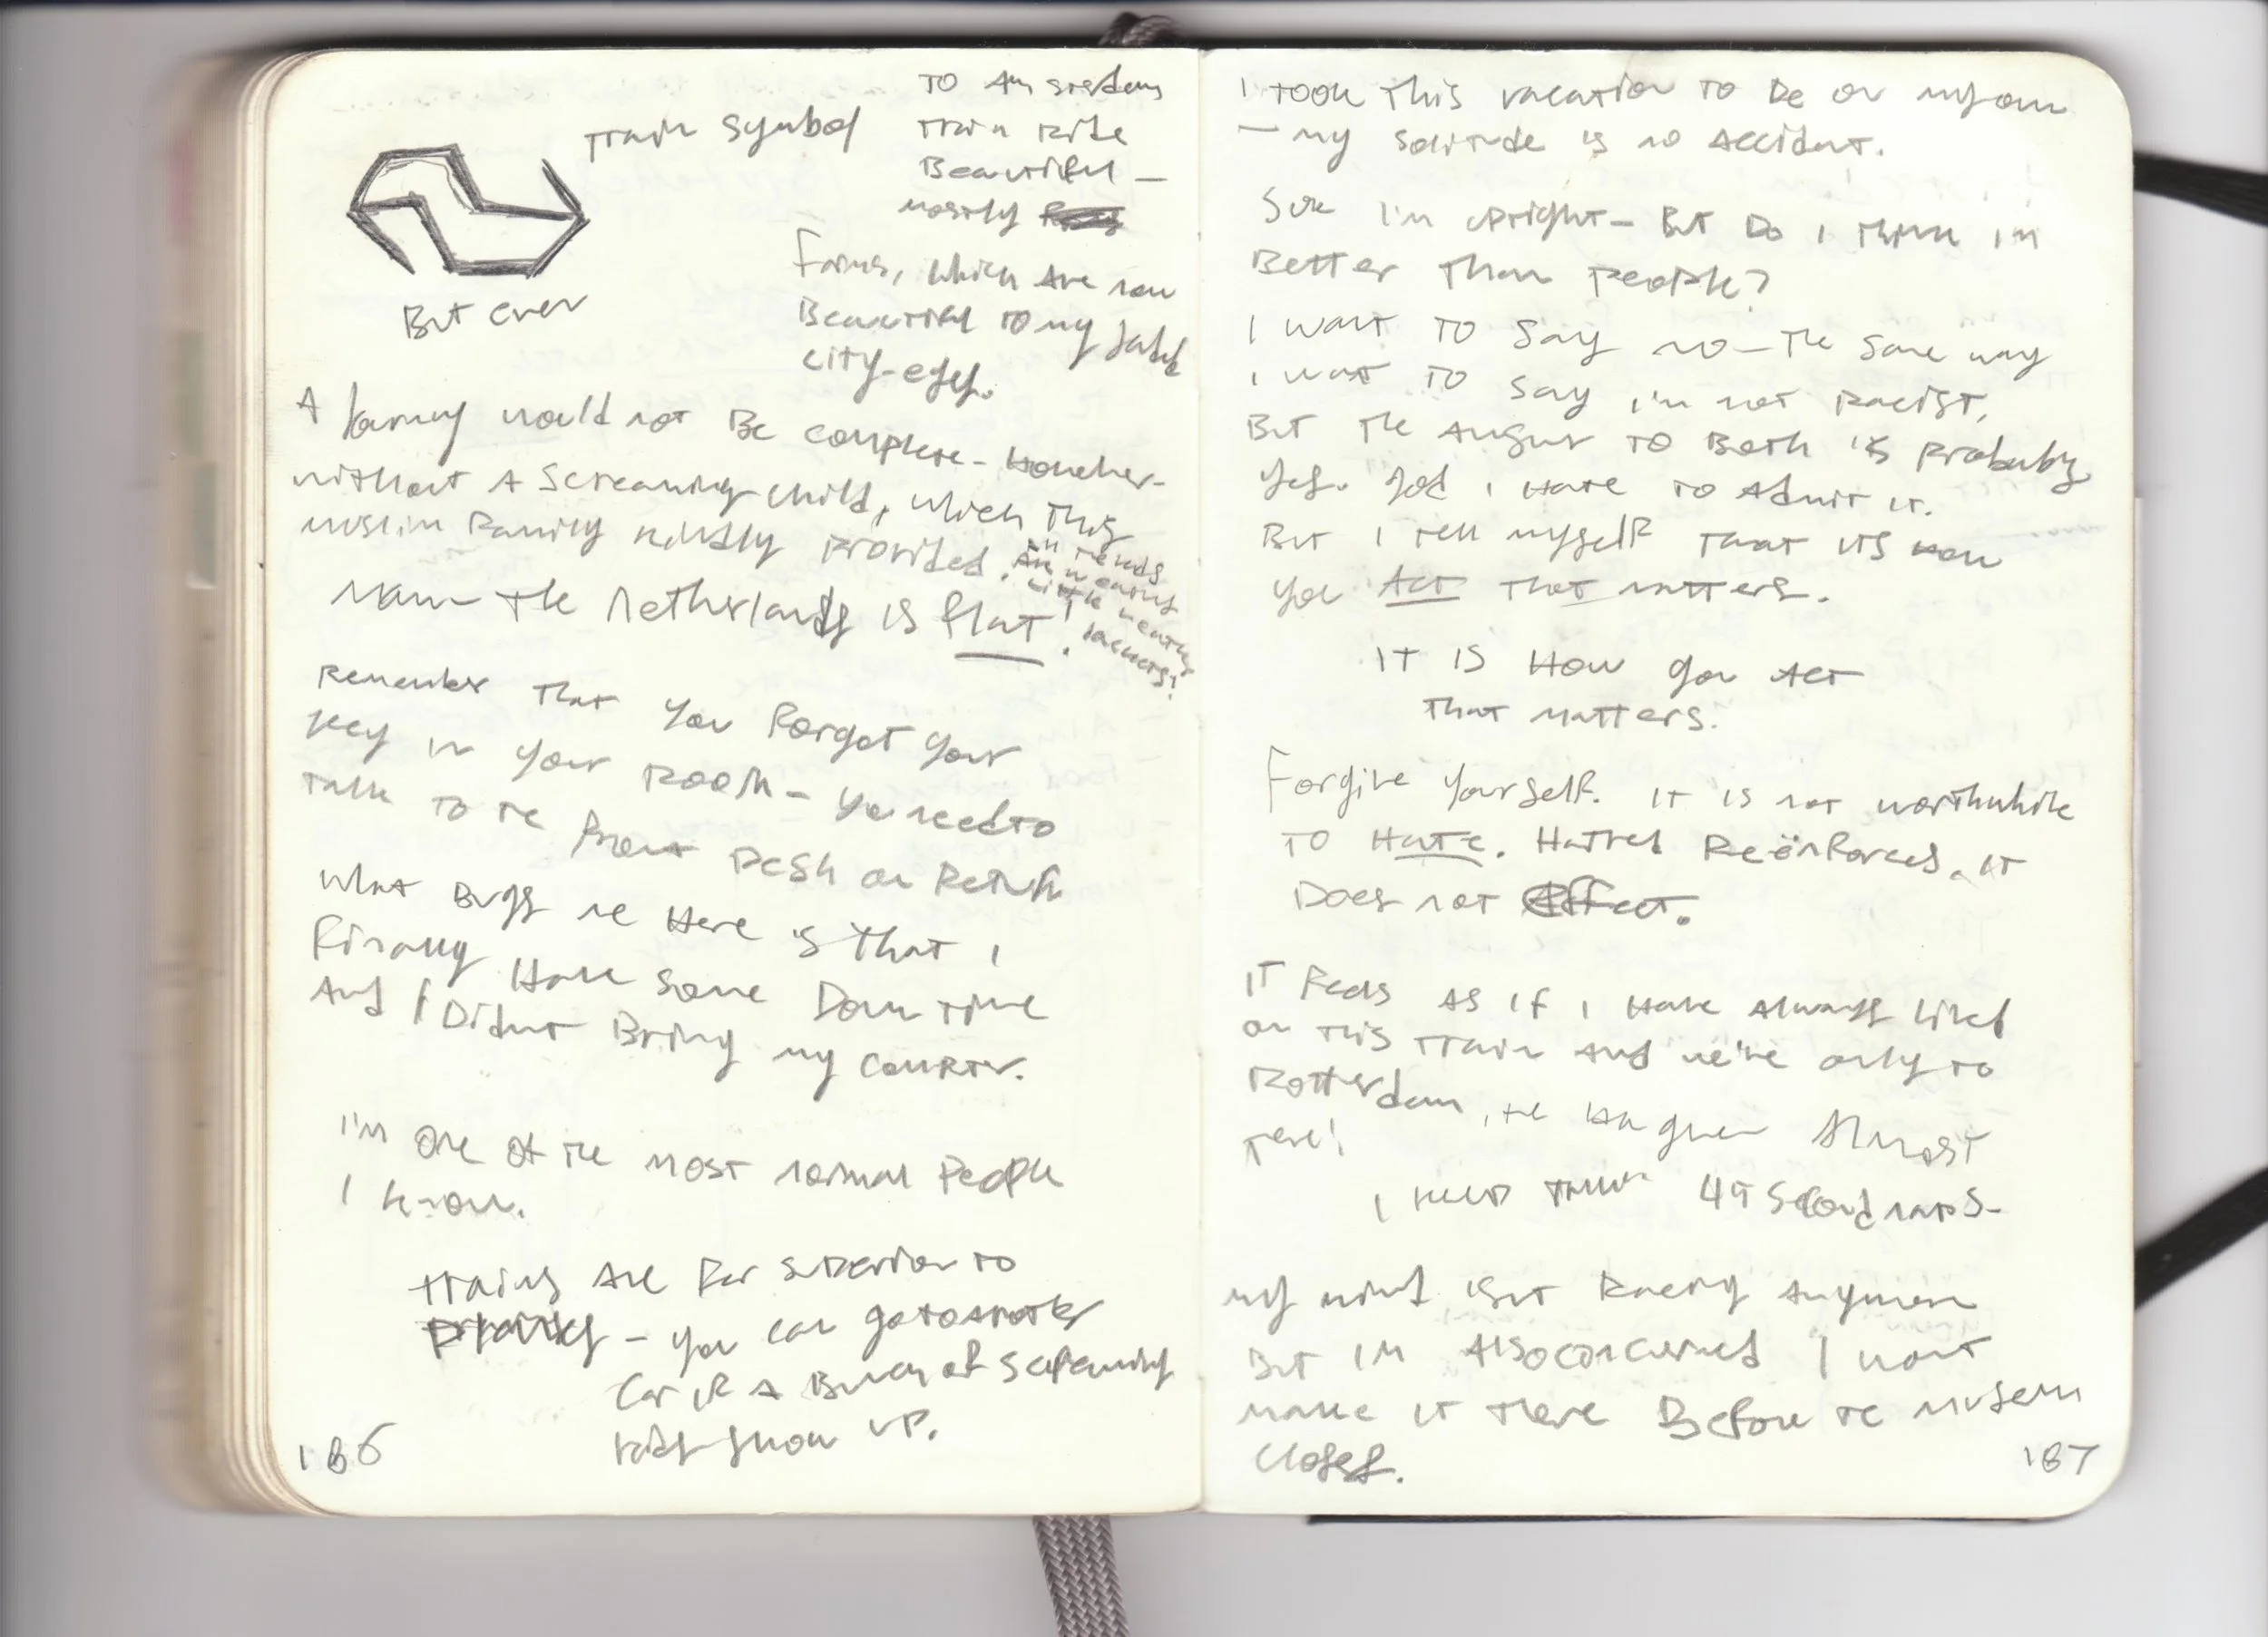 Train symbol
But ever
To Amsterdam
Train ride
Beautiful —
mostly
Farms, which are now
Beautiful to my jaded
city-eyes.
A journey would not be complete - however -
without a screaming child, which this
muslim family kindly provided.
little
Man - the Netherlands is flat!
Remember that you forgot your
key in your room - you need to
talk to the front desk on return
What bugs me here is that I
finally have some down time
and I didn't bring my computer.
I'm one of the most normal people
I know.
Trains are far superior to
planes - you can go to another
car if a bunch of screaming
kids show up.
186
I took this vacation to be on my own
— my solitude is no accident.
Sure I'm upright - But do I think I'm
better than people?
I want to say no - the same way
I want to say I'm not racist,
But the answer to both is probably
yes. God I hate to admit it.
But I tell myself that its how
you act that matters.
It is how you act
that matters.
Forgive yourself. It is not worthwhile
to hate. Hatred reënforces, it
does not effect.
It feels as if I have always lived
on this train and we've only to
Rotterdam, the Hague Almost
there!
I keep takin' 45 second naps -
my mind isn't racing anymore
But I'm also concerned I wont
make it there before the museum
closes.
187